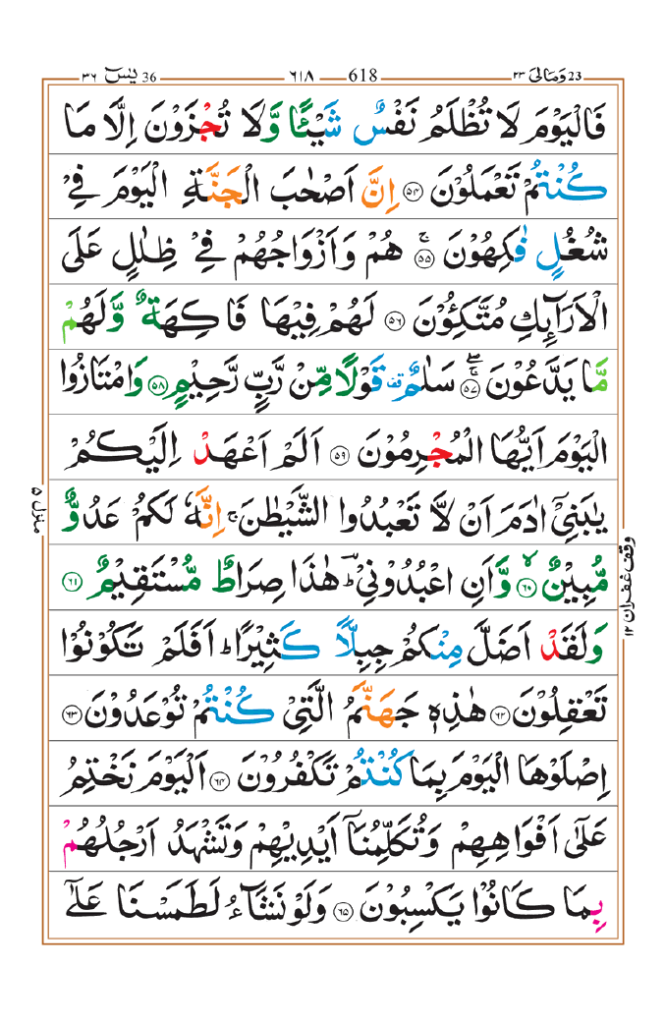 ومالی 23 ٢٣ 618 ٦١٨ یٰسٓ 36 ٣٦
فَالْيَوْمَ لَا تُظْلَمُ نَفْسٌ شَيْئًا وَّلَا تُجْزَوْنَ اِلَّا مَا
كُنْتُمْ تَعْمَلُوْنَ ۝٥٤ اِنَّ اَصْحٰبَ الْجَنَّةِ الْيَوْمَ فِيْ
شُغُلٍ فٰكِهُوْنَ ۝٥٥ۚ هُمْ وَاَزْوَاجُهُمْ فِيْ ظِلٰلٍ عَلَى
الْاَرَآىِٕكِ مُتَّكِـُٔوْنَ ۝٥٦ لَهُمْ فِيْهَا فَاكِهَةٌ وَّلَهُمْ
مَّا يَدَّعُوْنَ ۝٥٧ۚۖ سَلٰمٌ ۣ قَوْلًا مِّنْ رَّبٍّ رَّحِيْمٍ ۝٥٨ وَامْتَازُوا
الْيَوْمَ اَيُّهَا الْمُجْرِمُوْنَ ۝٥٩ اَلَمْ اَعْهَدْ اِلَيْكُمْ
يٰبَنِيْۤ اٰدَمَ اَنْ لَّا تَعْبُدُوا الشَّيْطٰنَ ۚ اِنَّهٗ لَكُمْ عَدُوٌّ
مُّبِيْنٌ ۝٦٠ۙ وَّاَنِ اعْبُدُوْنِيْ ؕؔ هٰذَا صِرَاطٌ مُّسْتَقِيْمٌ ۝٦١
وَلَقَدْ اَضَلَّ مِنْكُمْ جِبِلًّا كَثِيْرًا ؕ اَفَلَمْ تَكُوْنُوْا
تَعْقِلُوْنَ ۝٦٢ هٰذِهٖ جَهَنَّمُ الَّتِيْ كُنْتُمْ تُوْعَدُوْنَ ۝٦٣
اِصْلَوْهَا الْيَوْمَ بِمَا كُنْتُمْ تَكْفُرُوْنَ ۝٦٤ اَلْيَوْمَ نَخْتِمُ
عَلٰۤى اَفْوَاهِهِمْ وَتُكَلِّمُنَاۤ اَيْدِيْهِمْ وَتَشْهَدُ اَرْجُلُهُمْ
بِمَا كَانُوْا يَكْسِبُوْنَ ۝٦٥ وَلَوْ نَشَآءُ لَطَمَسْنَا عَلٰۤى
وقف غفران ١٢
منزل ٥